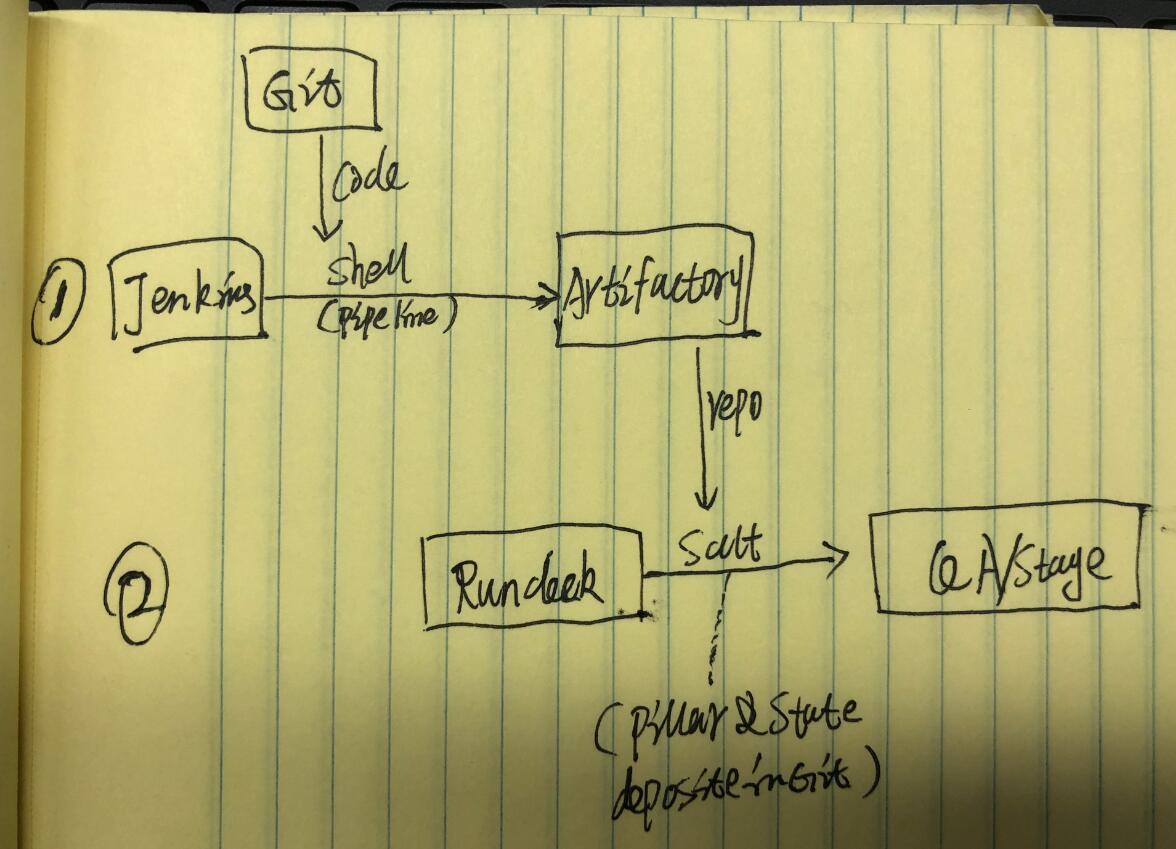 Git
code
①
Jenkins
Shell
(pipeline)
Artifactory
repo
②
Rundeek
Salt
QA/Stage
(pillar & State
deposite in Git)